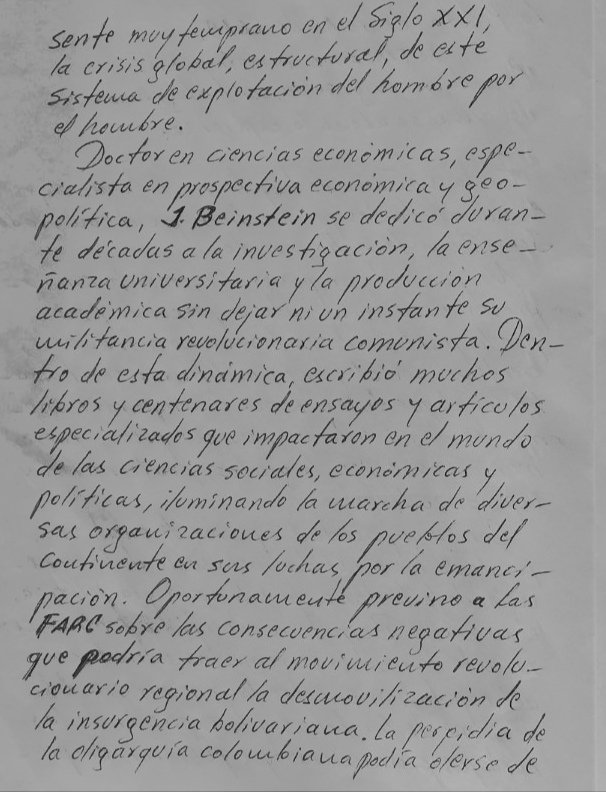 sente muy temprano en el Siglo XXI,
la crisis global, estructural, de este
sistema de explotación del hombre por
el hombre.
Doctor en ciencias económicas, espe-
cialista en prospectiva económica y geo-
política, J. Beinstein se dedicó duran-
te décadas a la investigación, la ense-
ñanza universitaria y la producción
académica sin dejar ni un instante su
militancia revolucionaria comunista. Den-
tro de esta dinámica, escribió muchos
libros y centenares de ensayos y artículos
especializados que impactaron en el mundo
de las ciencias sociales, económicas y
políticas, iluminando la marcha de diver-
sas organizaciones de los pueblos del
Continente en sus luchas por la emanci-
pación. Oportunamente previno a las
FARC sobre las consecuencias negativas
que podría traer al movimiento revolu-
cionario regional la desmovilización de
la insurgencia bolivariana. La perfidia de
la oligarquía colombiana podía olerse de